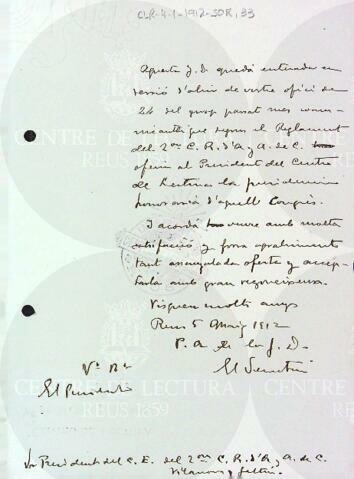 CLR-4.1-1912-30R,33
Aquesta J. D. quedá enterada en
sessió d'ahir de vostre ofici de
24 del prop passat mes comu-
nicantli que segons el Reglament
del 2on C. R. d'A. y A. de C.
oferia al President del Centre
de Lectura la presidencia
honoraria d'aquell Congrés.
I acordá veure amb molta
satisfacció y fons agrahiment
tant assenyalada oferta y accep-
tarla amb gran regoneixensa.
Visqueu molts anys
Reus 5 Maig 1912
P. A. de la J. D.
Vt. Bt. El Secretari
El President
Sr President del C. E. del 2on C. R. d'A. y A. de C.
Vilanova y Geltrú.
CENTRE DE LECTURA
REUS 1859